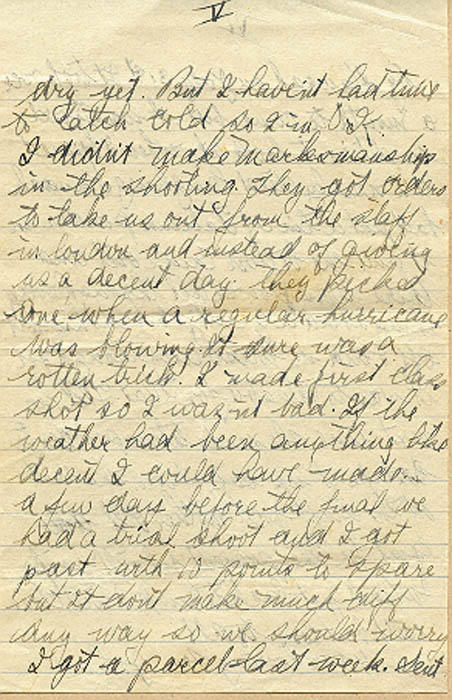 V
dry yet. But I havent had time
to catch cold so I'm O.K.
I didn't make marksmanship
in the shooting. They got orders
to take us out from the staff
in london and instead of giving
us a decent day they picked
one when a regular hurricane
was blowing. It sure was a
rotten trick. I made first class
shot so I wasn't bad. If the
weather had been anything like
decent I could have made...
a few days before the final we
had a trial shoot and I got
past with 10 points to spare
but it dont make much diff
any way so we should worry
I got a parcel last week. Sent